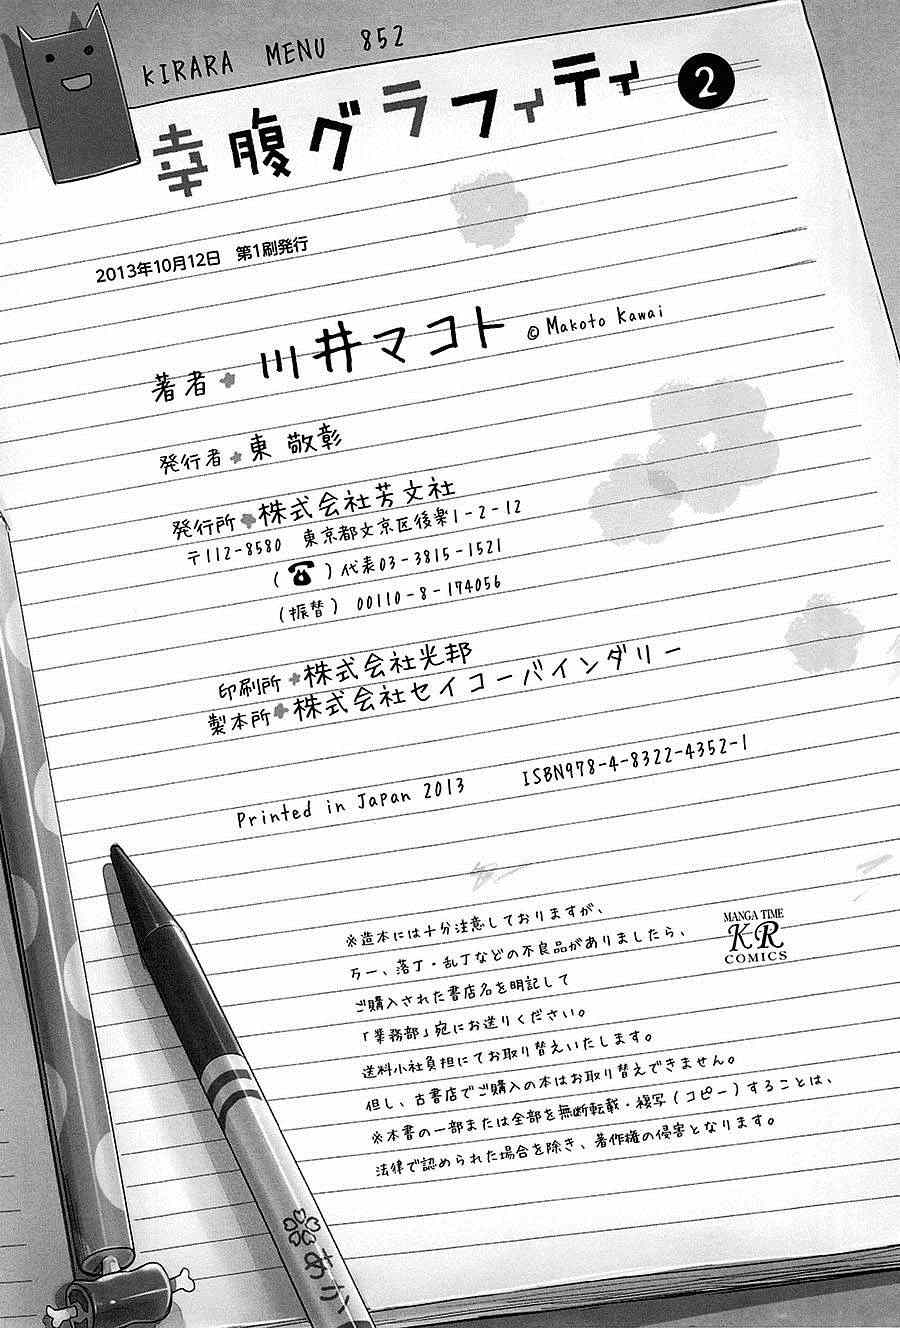 KIRARA MENU 852
幸腹グラフィティ 2
2013年10月12日 第1刷発行
著者 川井マコト © Makoto Kawai
発行者 東 敬彰
発行所 株式会社芳文社
〒112-8580 東京都文京区後楽1-2-12
(☎)代表03-3815-1521
(振替) 00110-8-174056
印刷所 株式会社光邦
製本所 株式会社セイコーバインダリー
Printed in Japan 2013 ISBN978-4-8322-4352-1
※造本には十分注意しておりますが、
万一、落丁・乱丁などの不良品がありましたら、
ご購入された書店名を明記して
「業務部」宛にお送りください。
送料小社負担にてお取り替えいたします。
但し、古書店でご購入の本はお取り替えできません。
※本書の一部または全部を無断転載・複写(コピー)することは、
法律で認められた場合を除き、著作権の侵害となります。
MANGA TIME
KR
COMICS